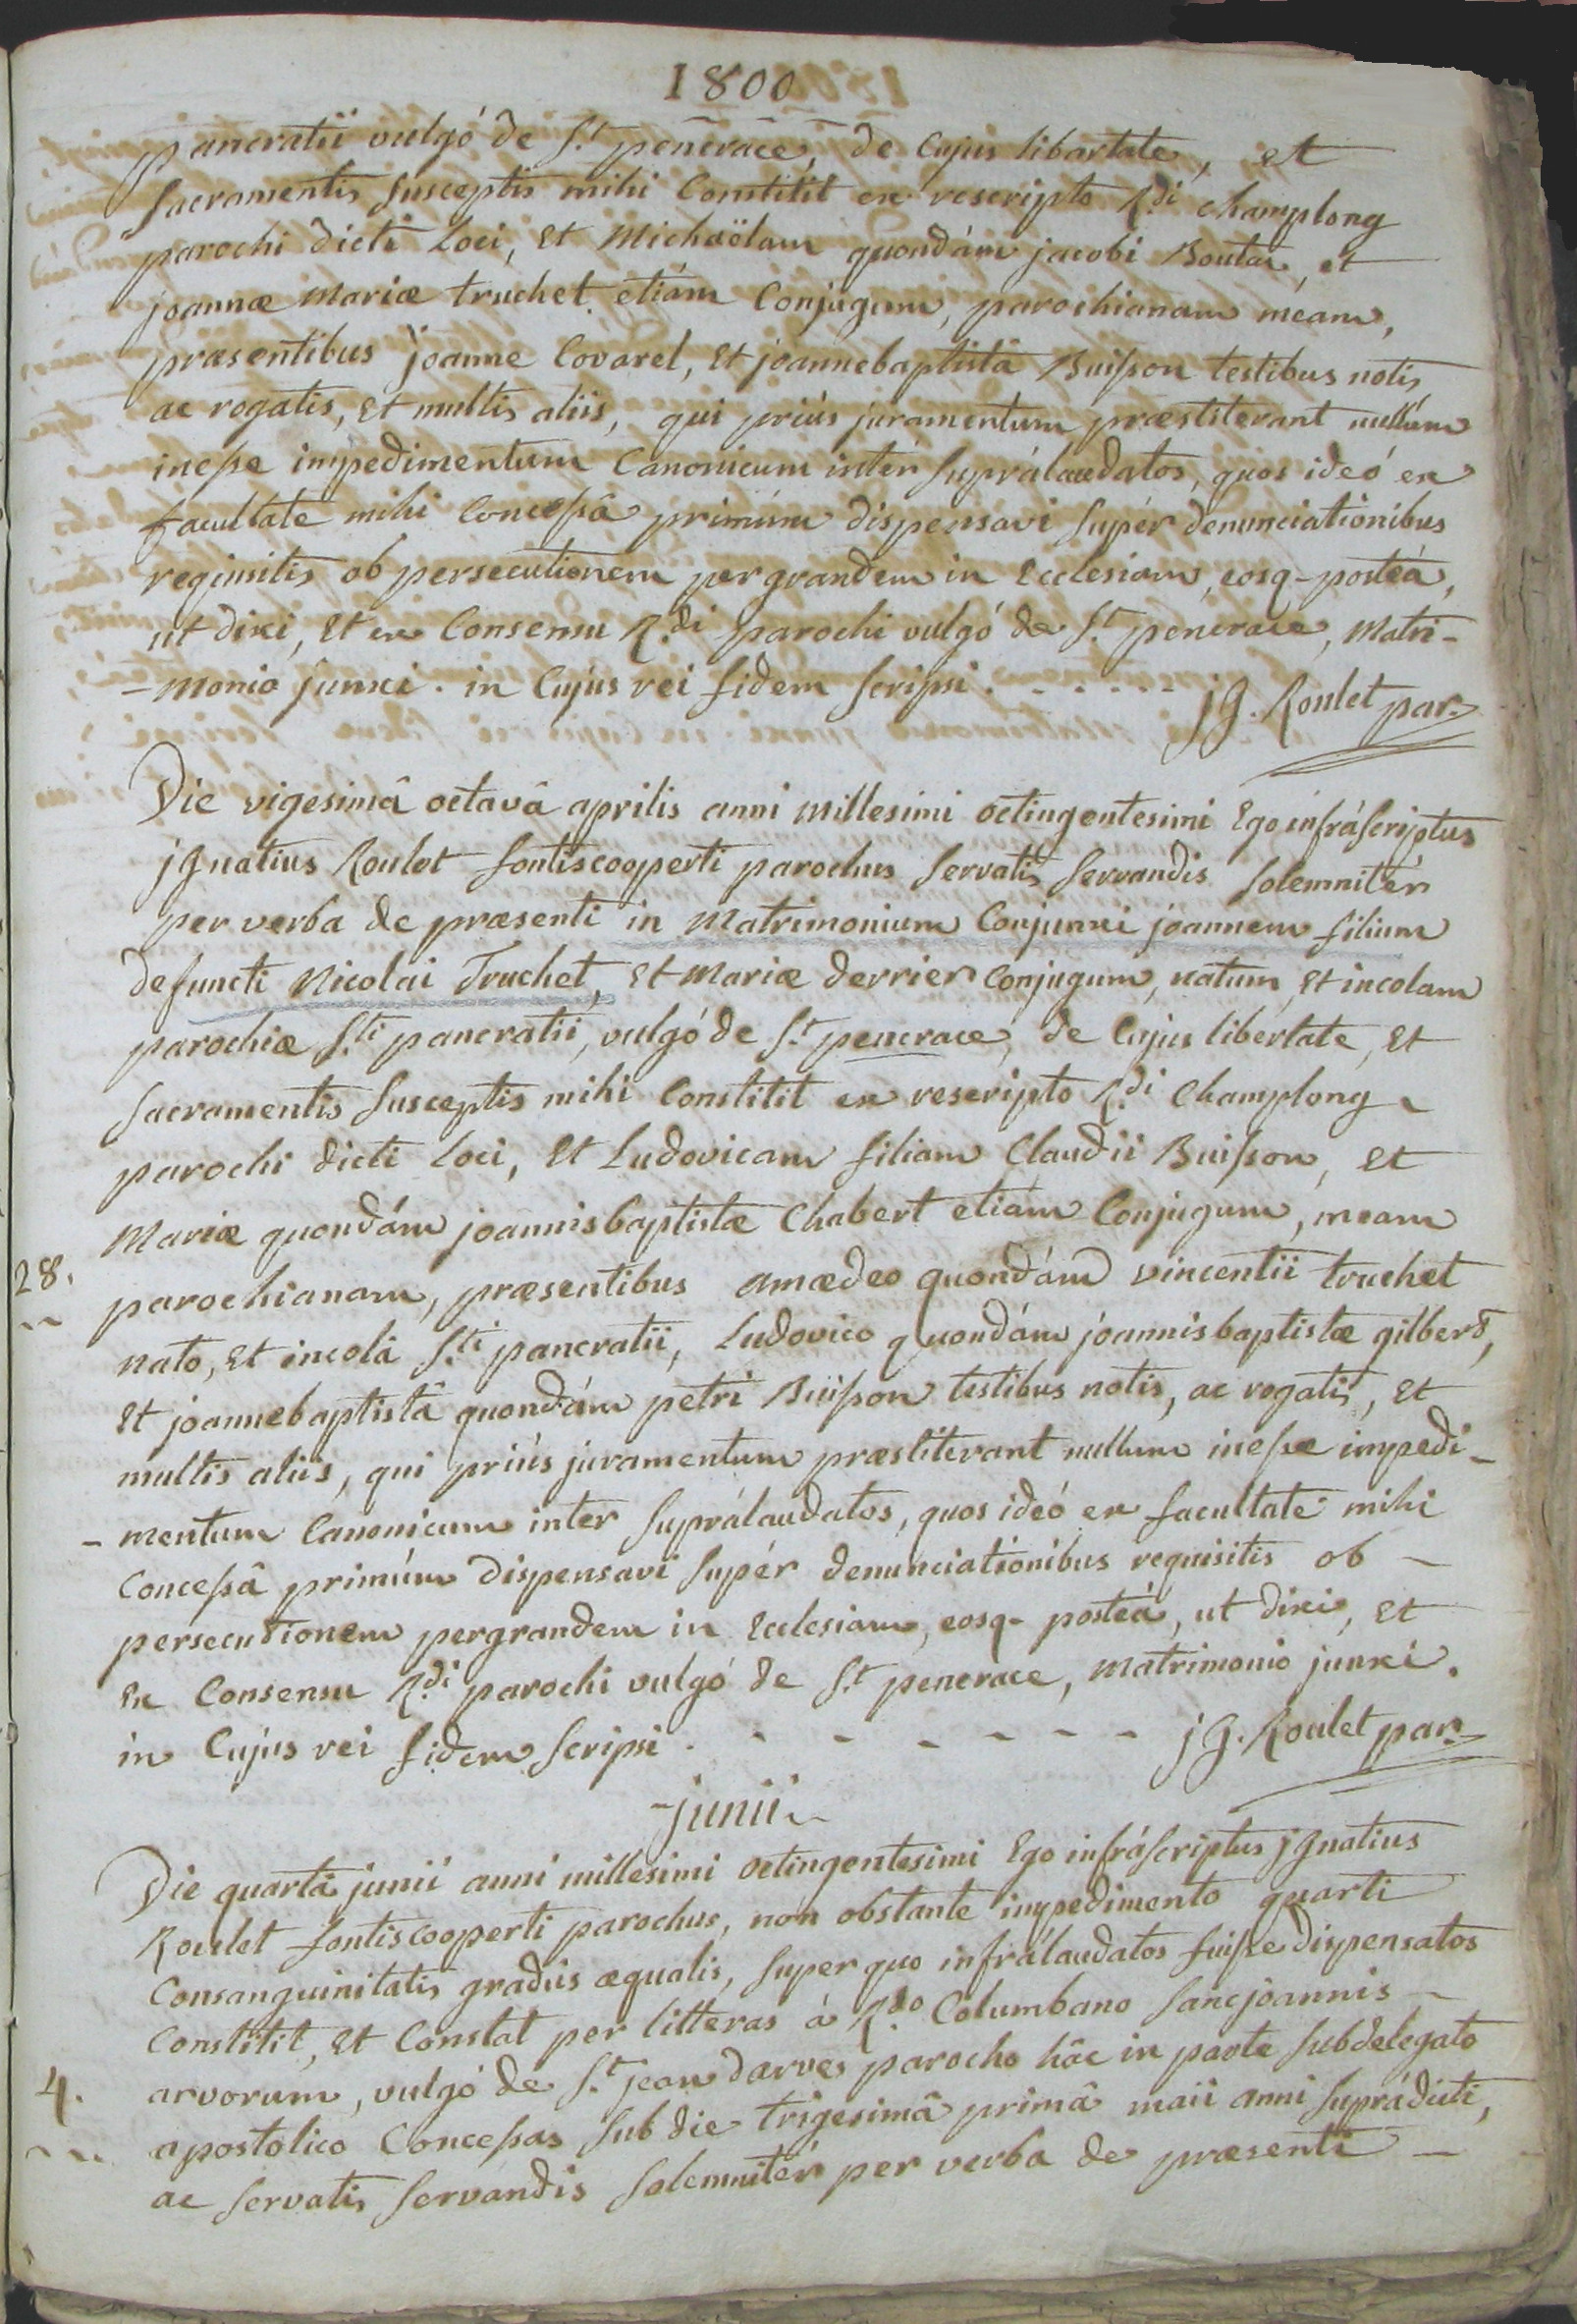 1800
pancratii vulgó de S.t penerace, de Cujus libertate, et
sacramentis susceptis mihi Constitit ex rescripto R.di champlong
parochi dicti Loci, Et Michaëlam quondám jacobi Boutaz, et
joannæ Mariæ truchet etiám Conjugum, parochianam meam,
præsentibus joanne Covarel, Et joannebaptistâ Buisson testibus notis
ac rogatis, Et multis aliis, qui priús juramentum præstiterant nullum
inesse impedimentum Canonicum intér suprálaudatos, quos ideó ex
facultate mihi Concessâ primúm dispensavi supér denunciationibus
requisitis ob persecutionem pergrandem in Ecclesiam, eosq- posteá,
ut dixi, Et ex Consensu R.di parochi vulgó de S.t penerace, Matri-
-monio junxi. in Cujus rei fidem scripsi . - - - - - jg. Roulet par.
Die vigesimâ octavâ aprilis anni millesimi octingentesimi Ego infráscriptus
jgnatius Roulet fontiscooperti parochus servatis servandis solemnitér
per verba de præsenti in Matrimonium Conjunxi joannem filium
defuncti Nicolai Truchet, Et Mariæ derrier Conjugum, natum, Et incolam
parochiæ S.ti pancratii, vulgó de S.t penerace, de Cujus libertate, Et
sacramentis susceptis mihi Constitit ex rescripto R.di Champlong
parochi dicti Loci, Et Ludovicam filiam Claudii Buisson, Et
Mariæ quondám joannisbaptistæ Chabert etiám Conjugum, meam
28. parochianam, præsentibus amædeo quondám vincentii truchet
nato, Et incolâ S.ti pancratii, Ludovico quondám joannisbaptistæ gilbert,
Et joannebaptistâ quondám petri Buisson testibus notis, ac rogatis, Et
multis aliis, qui priús juramentum præstiterant nullum inesse impedi-
- mentum Canonicum inter suprálaudatos, quos ideó ex facultate mihi
Concessâ primúm dispensavi supér denunciationibus requisitis ob -
persecutionem pergrandem in Ecclesiam, eosq- posteá, ut dixi, Et
Ex Consensu R.di parochi vulgó de S.t penerace, Matrimonio junxi.
in Cujus rei fidem scripsi . - - - - - - - jg. Roulet par.
junii
Die quartâ junii anni millesimi octingentesimi Ego infráscriptus jgnatius
Roulet fontiscooperti parochus, non obstante impedimento quarti
Consanguinitatis gradús æqualis, super quo infrálaudatos fuisse dispensatos
Constitit, Et Constat per litteras á R.do Columbano sancjoannis -
arvorum, vulgó de S.t jean darves parocho hâc in parte subdelegato
4. apostolico Concessas sub die trigesimâ primâ maii anni suprádicti,
ac servatis servandis solemnitér per verba de præsenti -